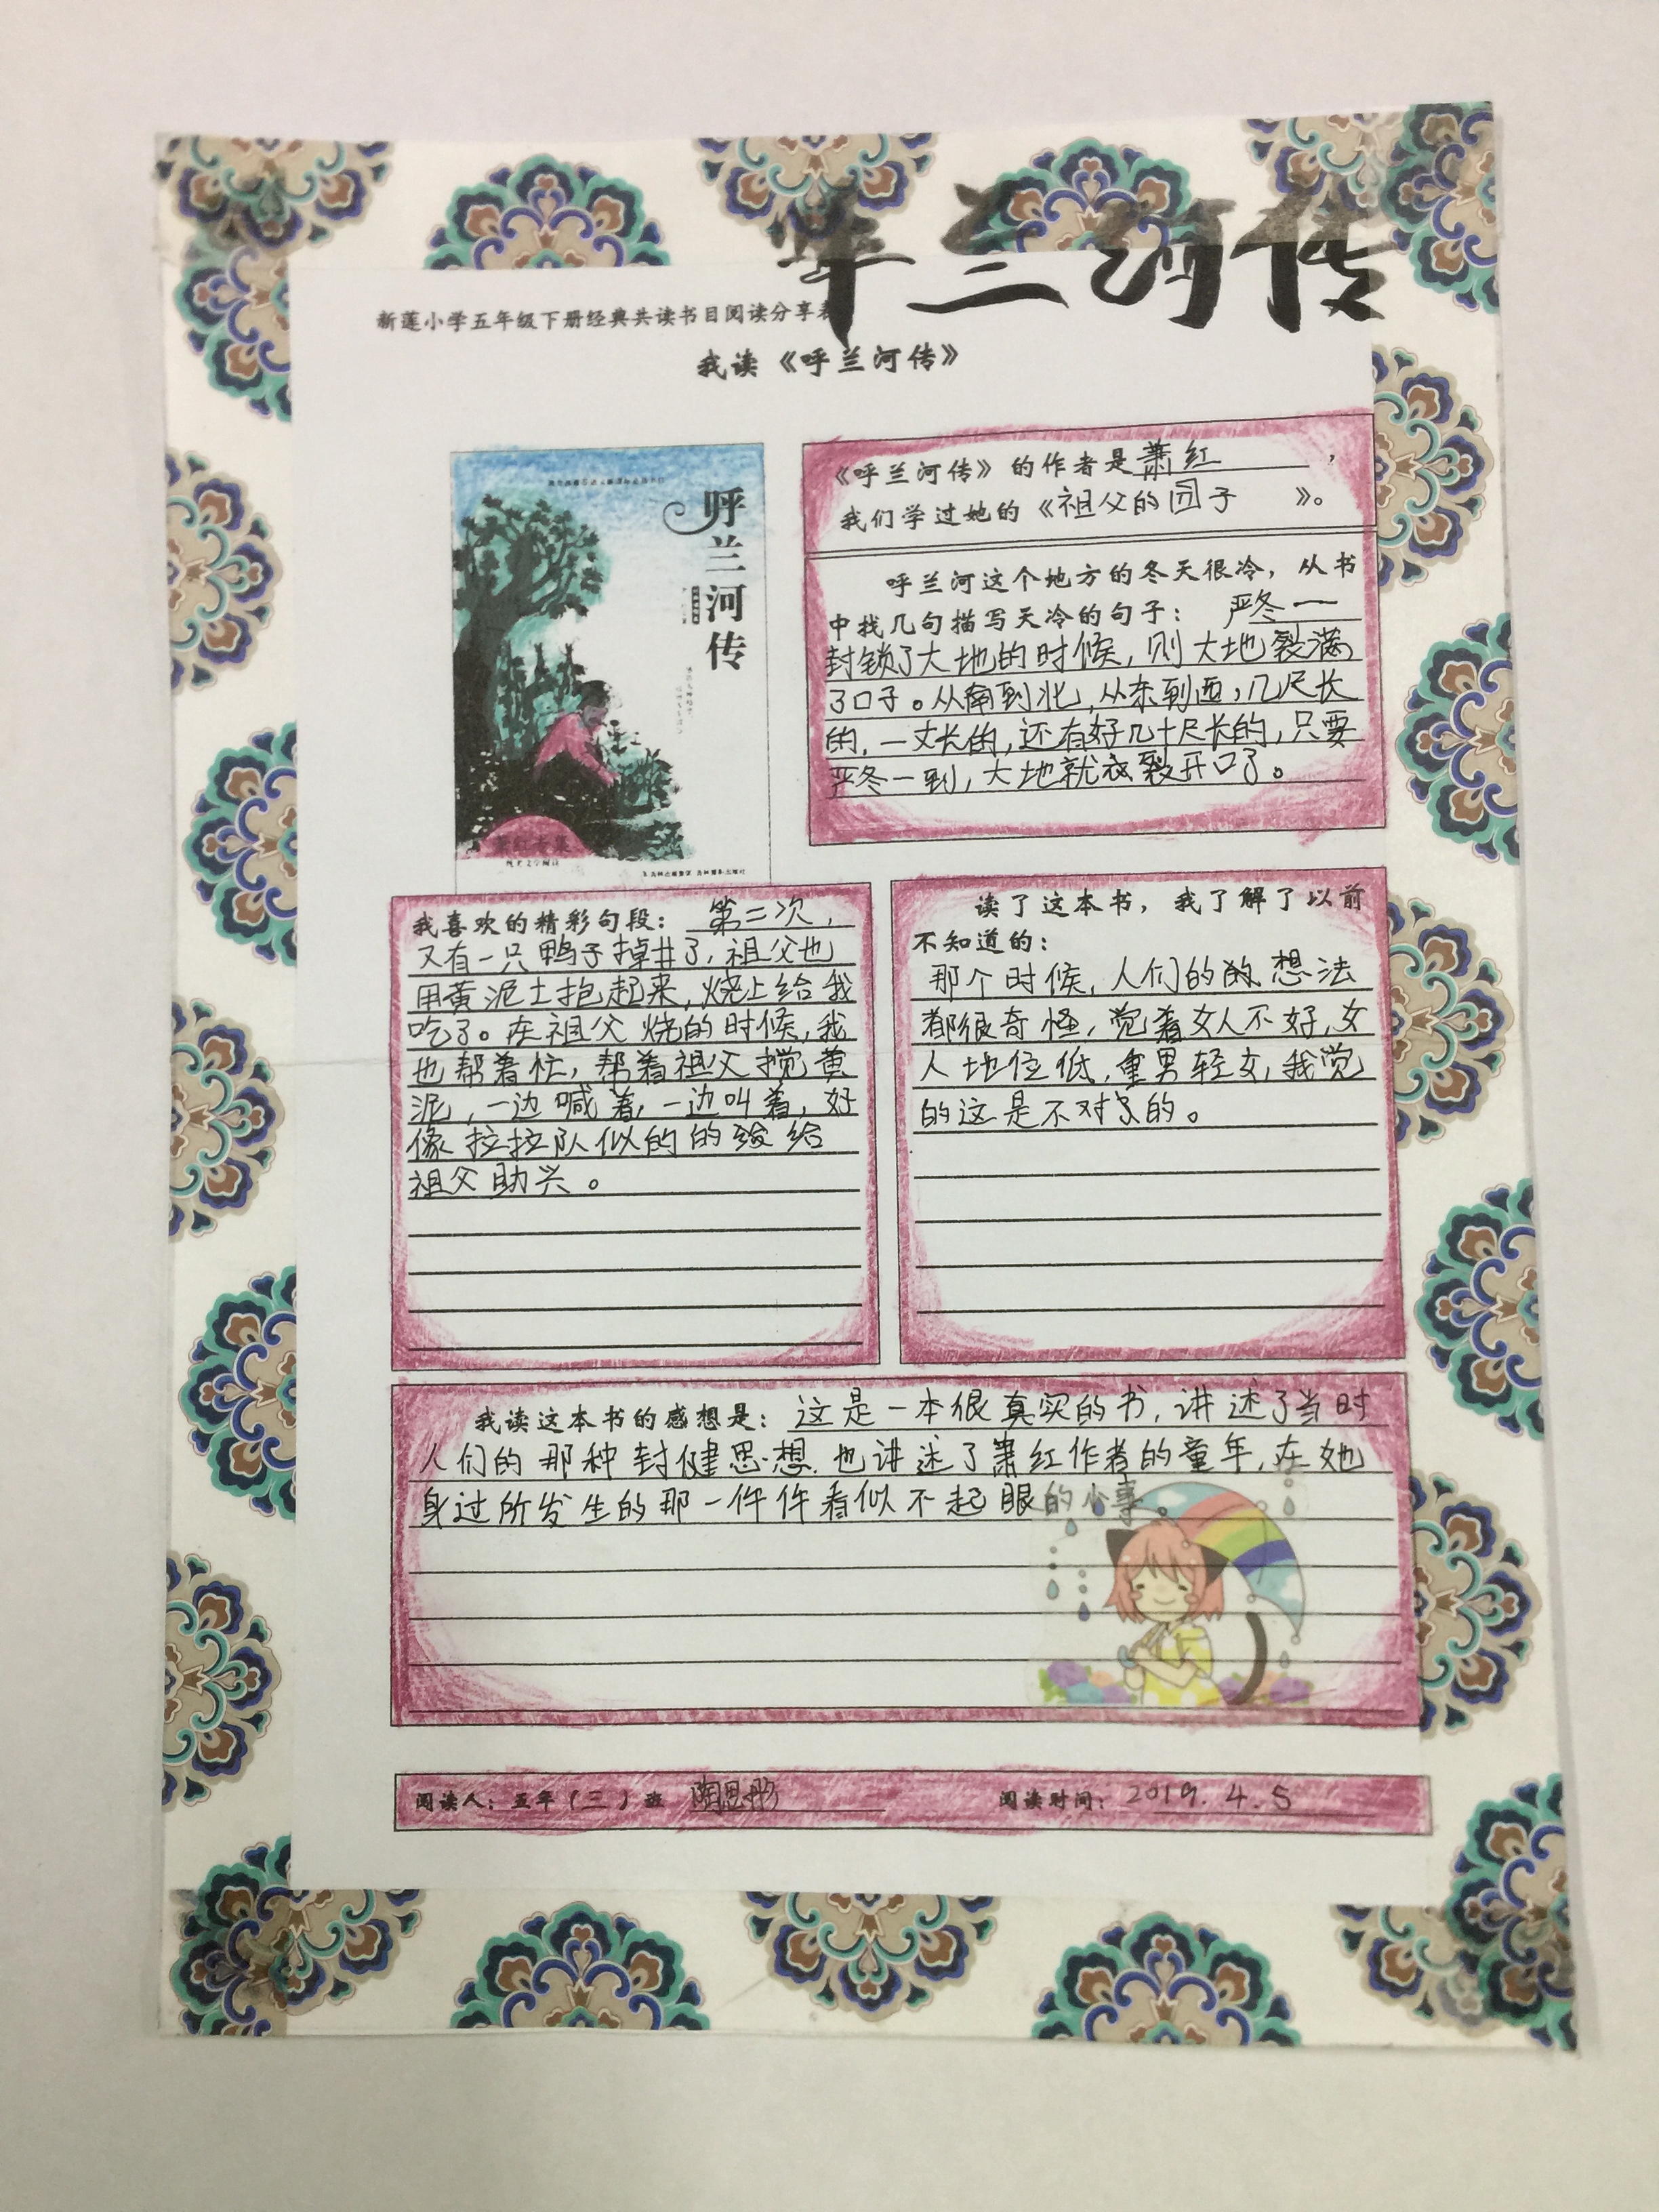 呼兰河传
新莲小学五年级下册经典共读书目阅读分享表
我读《呼兰河传》
呼兰河传
《呼兰河传》的作者是萧红，
我们学过她的《祖父的园子》。
呼兰河这个地方的冬天很冷，从书
中找几句描写天冷的句子：严冬一
封锁了大地的时候，则大地裂满
了口子。从南到北，从东到西，几尺长
的，一丈长的，还有好几十尺长的，只要
严冬一到，大地就裂开口了。
我喜欢的精彩句段：第二次，
又有一只鸭子掉井了，祖父也
用黄泥土抱起来，烧上给我
吃了。在祖父烧的时候，我
也帮着忙，帮着祖父搅黄
泥，一边喊着，一边叫着，好
像拉拉队似的的给
祖父助兴。
读了这本书，我了解了以前
不知道的：
那个时候，人们的想法
都很奇怪，觉着女人不好，女
人地位低，重男轻女，我觉
的这是不对的。
我读这本书的感想是：这是一本很真实的书，讲述了当时
人们的那种封健思想，也讲述了萧红作者的童年，在她
身过所发生的那一件件看似不起眼的小事
阅读人：五年（三）班 陶思彤 阅读时间：2019.4.5